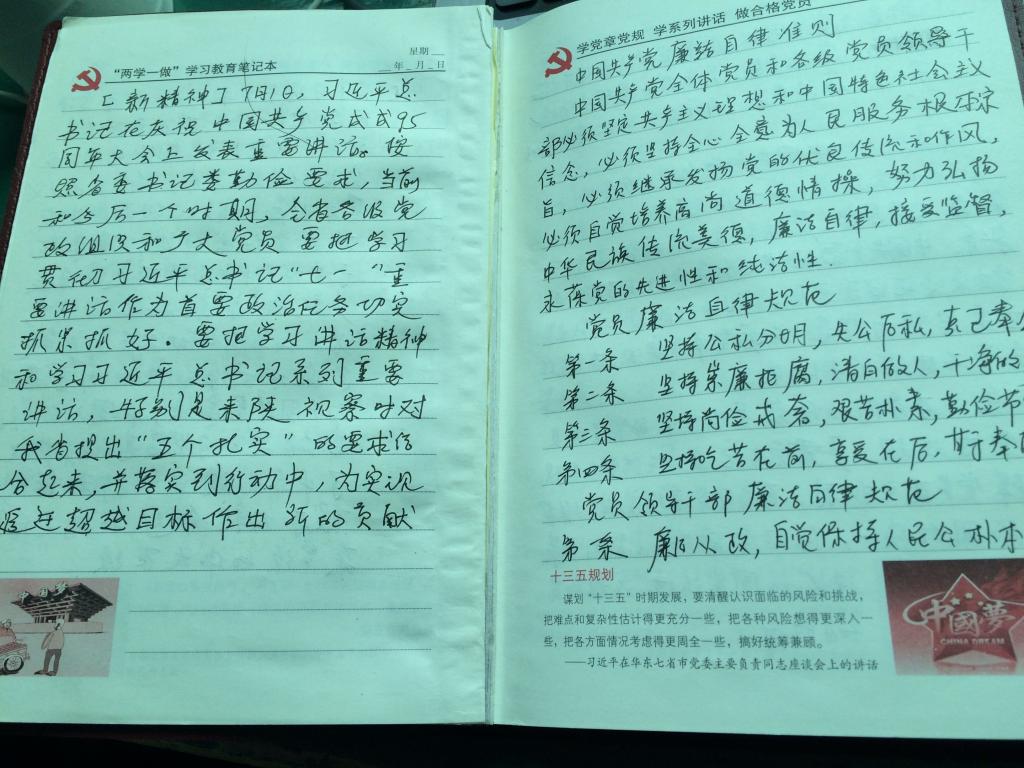 星期
年 月 日
“两学一做”学习教育笔记本
[新精神]7月1日,习近平总
书记在庆祝中国共产党成立95
周年大会上发表重要讲话。按
照省委书记娄勤俭要求,当前
和今后一个时期,全省各级党
政组织和广大党员要把学习
贯彻习近平总书记“七一”重
要讲话作为首要政治任务切实
抓紧抓好。要把学习讲话精神
和学习习近平总书记系列重要
讲话,特别是来陕视察时对
我省提出“五个扎实”的要求结
合起来,并落实到行动中,为实现
追赶超越目标作出新的贡献
中国梦
学党章党规 学系列讲话 做合格党员
中国共产党廉洁自律准则
中国共产党全体党员和各级党员领导干
部必须坚定共产主义理想和中国特色社会主义
信念,必须坚持全心全意为人民服务根本宗
旨,必须继承发扬党的优良传统和作风,
必须自觉培养高尚道德情操,努力弘扬
中华民族传统美德,廉洁自律,接受监督,
永葆党的先进性和纯洁性.
党员廉洁自律规范
第一条 坚持公私分明,先公后私,克己奉公
第二条 坚持崇廉拒腐,清白做人,干净的
第三条 坚持尚俭戒奢,艰苦朴素,勤俭节
第四条 坚持吃苦在前,享受在后,甘于奉
党员领导干部廉洁自律规范
第一条 廉洁从政,自觉保持人民公仆本
十三五规划
谋划“十三五”时期发展,要清醒认识面临的风险和挑战,
把难点和复杂性估计得更充分一些,把各种风险想得更深入一
些,把各方面情况考虑得更周全一些,搞好统筹兼顾。
——习近平在华东七省市党委主要负责同志座谈会上的讲话
中國夢
CHINA DREAM